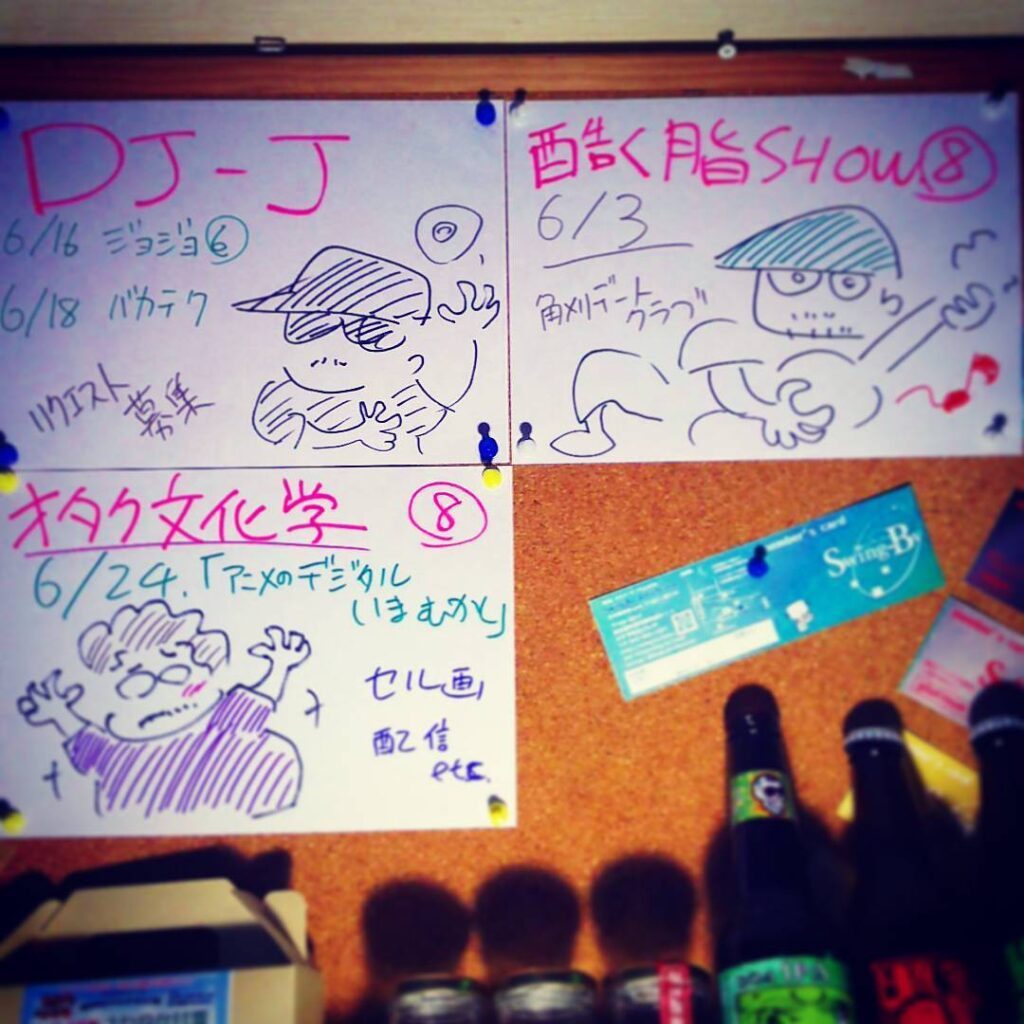 DJ-J
6/16 ジョジョ⑥
6/18 バカテク
リクエスト
募集
酷く脂SHOW⑧
6/3
角メリデート
クラブ
オタク文化学 ⑧
6/24.「アニメのデジタル
いまむかし」
セル画
配信
etc.
member's card
Swing-By